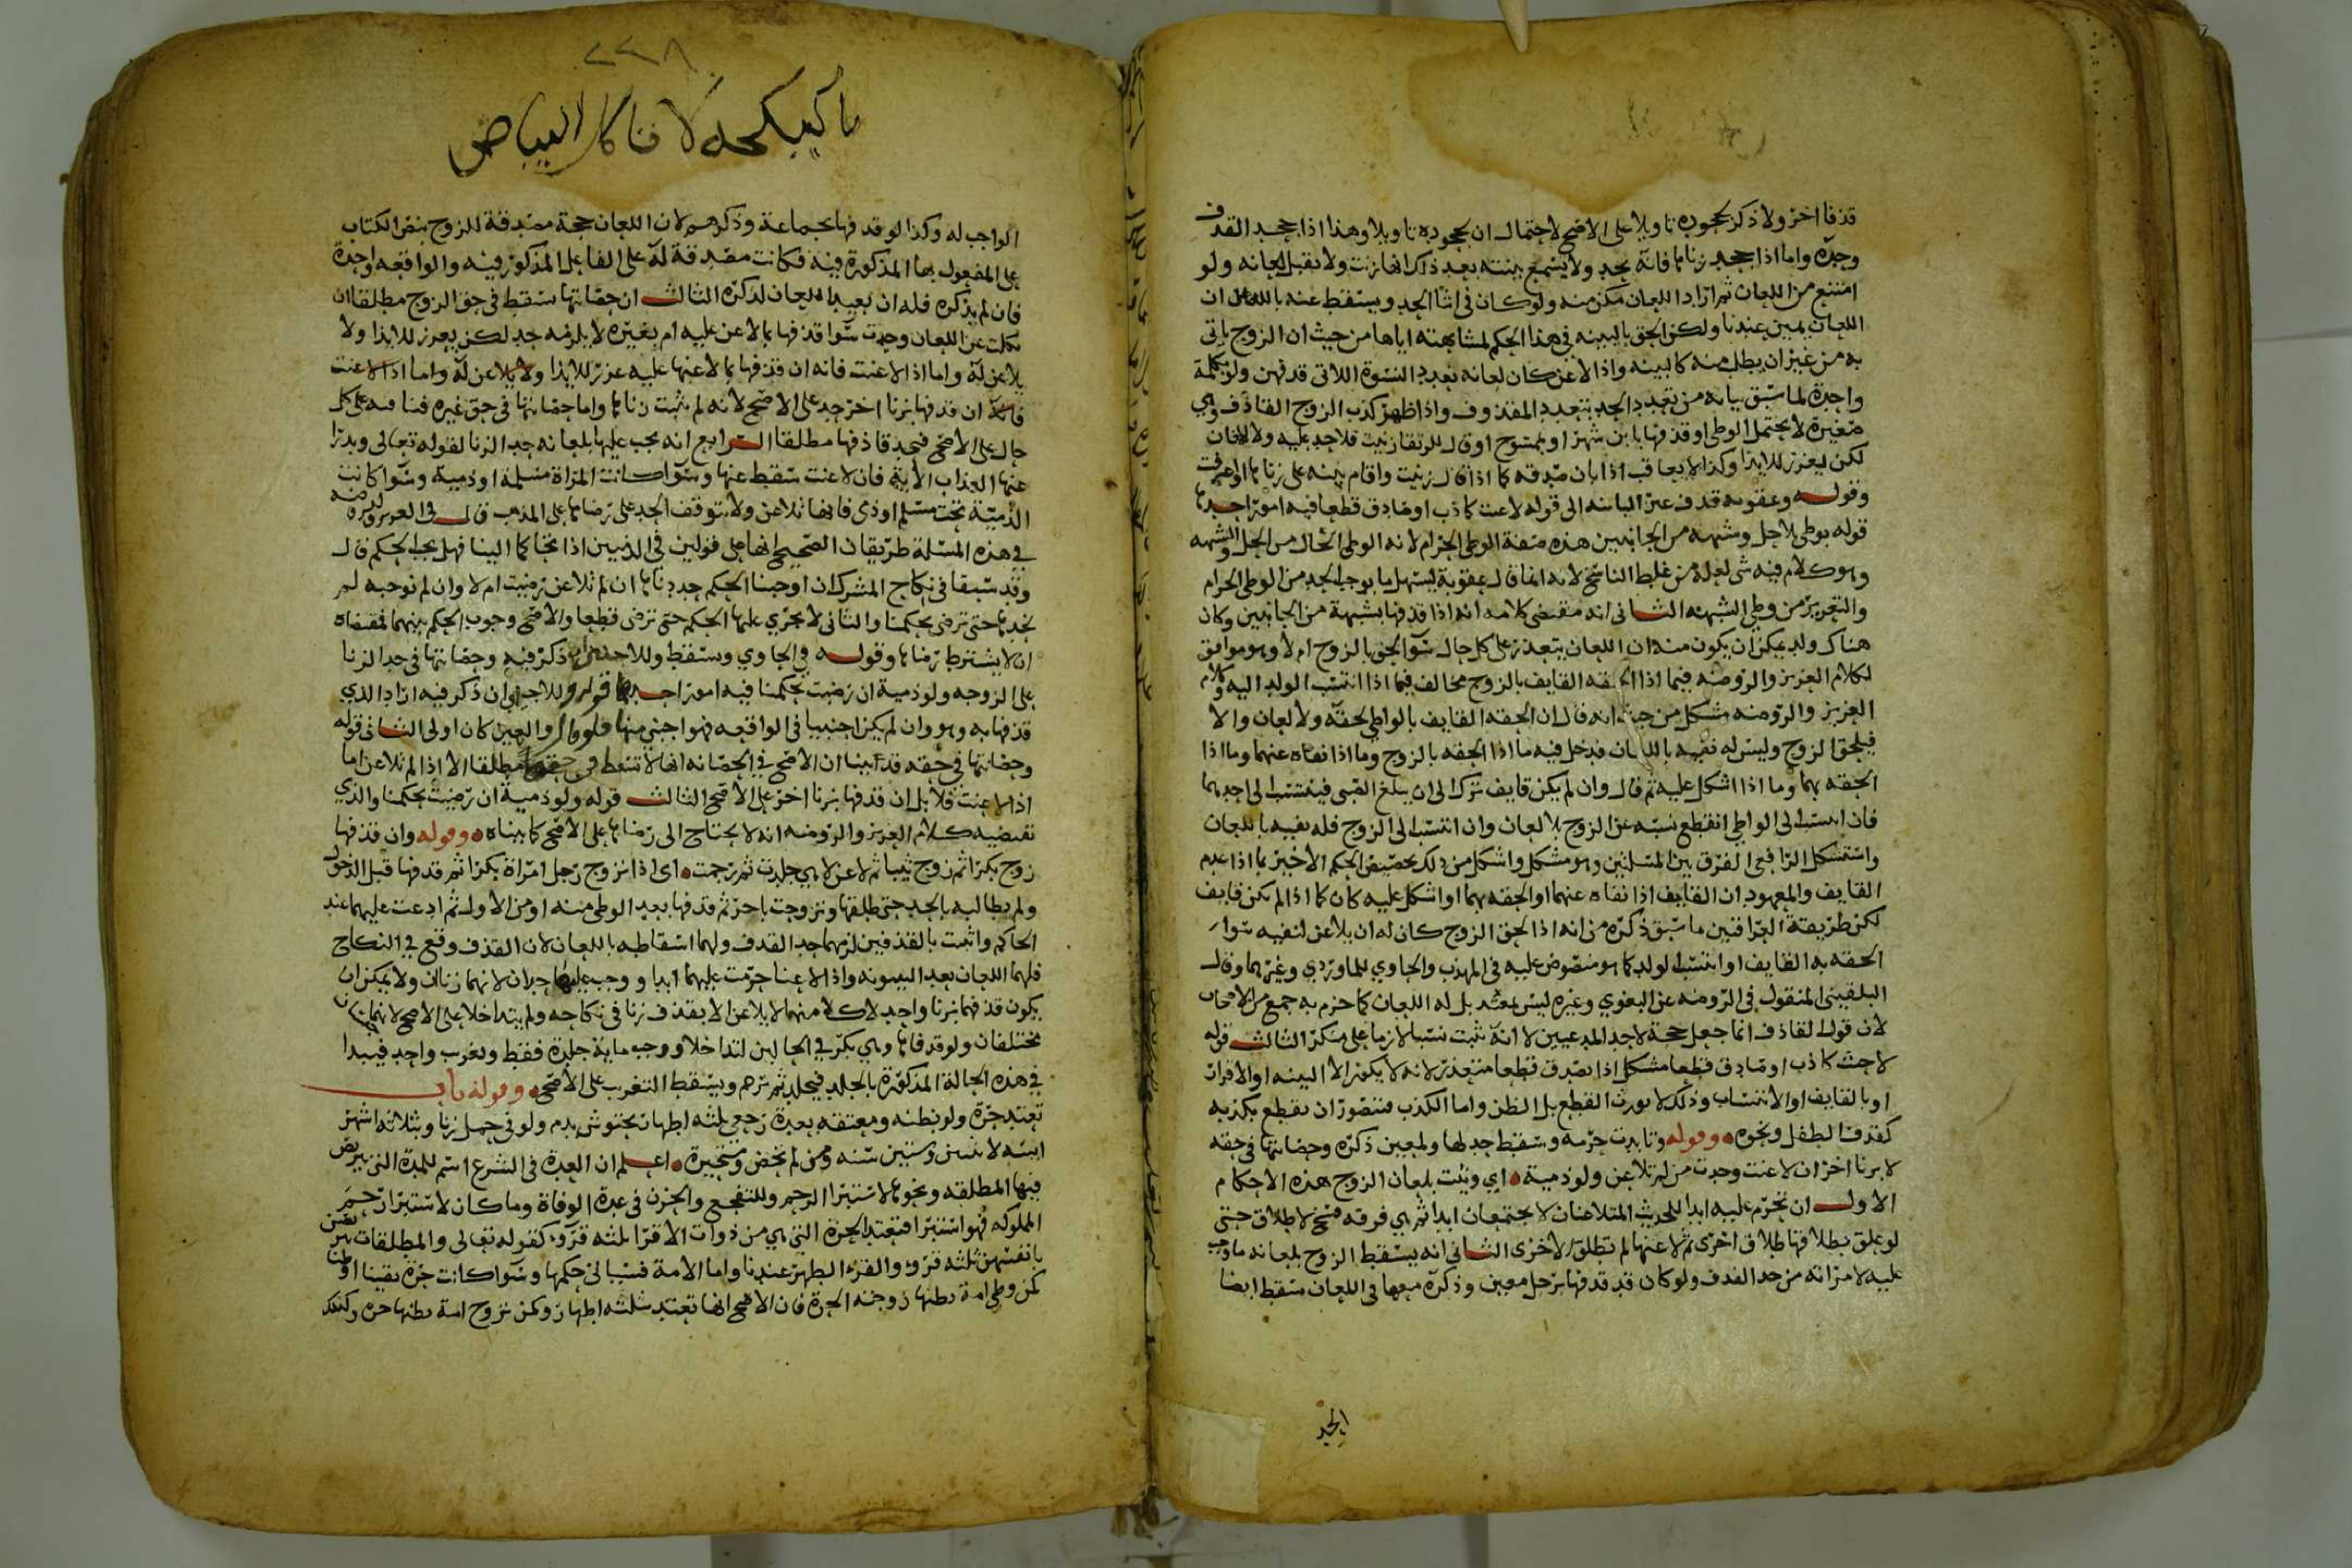 قذفا اخر ولا ذكر لجحوده تاويلا على الاصح لاحتمال ان لجحوده تاويلا وهذا اذا جحد القذف
وحده واما اذا جحد زناها فانه يحد ولا يسمع بينته بعد ذلك انها زنت ولا يقبل لعانه ولو
امتنع من اللعان ثم اراد اللعان مكن منه ولو كان في اثنا الحد ويسقط عنه باللعان ان
اللعان يمين عندنا ولكن الحق بالبينه في هذا الحكم لمشابهته اياها من حيث ان الزوج ياتى
به من غير ان يطلب منه كالبينه واذا لاعن كان لعانه بعدد النسوة اللاتى قذفهن ولو بكلمة
واحدة لما سبق بيانه من تعدد الحد بتعدد المقذوف واذا ظهر كذب الزوج القاذف وهي
صغيرة لا يحتمل الوطى او قذفها بابن شهر او بممسوح او قال للرتقا زنيت فلا حد عليه ولا لعان
لكن يعزر للايذا وكذا لا يعاقب اذا بان صدقه كما اذا قال زنيت واقام بينه على زناها او اعترفت
وقوله وعقوبه قذف الى قوله لاعت كاذب او صادق قطعا فيه امور احدها
قوله بوطى لا حل وشبهه من الجانبين هذه صفة الوطى الحرام لانه الوطى الخال من الحل والشبهه
وهو كلام فيه شى لعله من غلط الناسخ لانه انما قال عقوبة ليشمل ما يوجب الحد من الوطى الحرام
والتعزير من وطى الشبهه الثانى انه مقتضى كلامه انه اذا قذفها بشبهة من الجانبين وكان
هناك ولد يمكن ان يكون منه ان اللعان يتعذر على كل حال سوا لحق بالزوج ام لا وهو موافق
لكلام العزيز والروضه فيما اذا الحقه القايف بالزوج مخالف فيما اذا انتسب الولد اليه وكلام
العزيز والروضه مشكل من حيث انه قال ان الحقه القايف بالواطي لحقه ولا لعان والا
فيلحق الزوج وليس له نفيه باللعان فدخل فيه ما اذا الحقه بالزوج وما اذا نفاه عنهما وما اذا
الحقه بهما وما اذا اشكل عليه ثم قال وان لم يكن قايف ترك الى ان يبلغ الصبى فينتسب الى احدهما
فان انتسب الى الواطي انقطع نسبه عن الزوج بلا لعان وان انتسب الى الزوج فله نفيه باللعان
واستشكل الرافعي الفرق بين المسلتين وهو مشكل واشكل من ذلك تخصيص الحكم الاخير بما اذا عدم
القايف والمعهود ان القايف اذا نفاه عنهما او الحقه بهما او اشكل عليه كان كما اذا لم يكن قايف
لكن طريقة العراقيين ما سبق ذكره من انه اذا لحق الزوج كان له ان يلاعن لنفيه سوا
الحقه به القايف او انتسب الولد كما هو منصوص عليه في المهذب والحاوي للماوردي وغيرهما وقال
البلقيني المنقول فى الروضه عن البغوي وغيره ليس بمعتمد بل له اللعان كما جزم به جمع من الاصحاب
لان قول القاذف انما جعل حجة لاحد المدعيين لا انه يثبت نسبا لازما على منكر الثالث قوله
لاعت كاذب او صادق قطعا مشكل اذا صدق قطعا متعذر لانه لا يكون الا البينه او الاقرار
او بالقايف او الانتساب وذلك لا يورث القطع بل الظن واما الكذب فتصور ان يقطع بكذبه
كقذف الطفل ونحوه وقوله وتابدت حرمه وسقط حد لها ولمعين ذكره وحصانتها فى حقه
لا بزنا اخر ان لاعنت وحدت من لم تلاعن ولو ذمية اي ويثبت بلعان الزوج هذه الاحكام
الاول ان تحرم عليه ابدا للحديث المتلاعنان لا يجتمعان ابدا ثم هي فرقه فسخ لا طلاق حتى
لو علق بطلاقها طلاق اخرى ثم لاعنها لم تطلق الاخرى الثانى انه يسقط الزوج بلعانه ما وجب
عليه لامراته من حد القذف ولو كان قد قذفها برجل معين وذكره معها فى اللعان سقط ايضا
الحد
٢٢٨
الواجب له وكذا لو قذفها بجماعة وذكرهم لان اللعان حجة مصدقة للزوج بنص الكتاب
على المفعول بها المذكورة فيه فكانت مصدقة له على الفاعل المذكور فيه والواقعه واحدة
فان لم يذكره فله ان يعيد اللعان لذكره الثالث ان حصانتها تسقط فى حق الزوج مطلقا ان
نكلت عن اللعان وحدت سوا قذفها بما لاعن عليه ام بغيره لا يلزمه حد لكن يعزر للايذا ولا
يلاعن له واما اذا لاعنت فانه ان قذفها بما لاعنها عليه عزر للايذا ولا يلاعن له واما اذا لاعنت
فانه ان قذفها بزنا اخر حد على الاصح لانه لم يثبت زناها واما حصانتها فى حق غيره فباقيه على كل
حال على الاصح فيحد قاذفها مطلقا الرابع انه يجب عليها بلعانه حد الزنا لقوله تعالى ويدرا
عنها العذاب الاية فان لاعنت سقط عنها وسوا كانت المراة مسلمة او ذمية وسوا كانت
الذمية تحت مسلم او ذمى فانها تلاعن ولا يتوقف الحد على رضاها على المذهب قال فى العزيز والروضه
في هذه المسئلة طريقان الصحيح انها على قولين فى الذميين اذا تحاكما الينا فهل يجب الحكم قال
وقد سبقا فى نكاح المشرك ان اوجبنا الحكم حددناها ان لم تلاعن رضيت ام لا وان لم نوجبه لم
نحدها حتى ترضى بحكمنا والثانى لا يجري عليها الحكم حتى ترضى قطعا والاصح وجوب الحكم بينهما فمقتضاه
ان لا يشترط رضاها وقوله فى الحاوي وسقط وللاجنبى ان ذكر فيه وحصانتها فى حد الزنا
على الزوجه ولو ذمية ان رضيت بحكمنا فيه امور احدها قوله وللاجنبي ان ذكر فيه اراد الذي
قذفها به وهو وان لم يكن اجنبيا فى الواقعه فهو اجنبي منها فلو قال والمعين كان اولى الثانى قوله
وحصانتها في حقه قد بينا ان الاصح في الحصانه انها لا تسقط فى حقه مطلقا الا اذا لم تلاعن اما
اذا لاعنت فلا بل ان قذفها بزنا اخر على الاصح الثالث قوله ولو ذمية ان رضيت بحكمنا والذي
يقتضيه كلام العزيز والروضه انه لا يحتاج الى رضاها على الاصح كما بيناه وقوله وان قذفها
زوج بكرا ثم زوج ثيبا ثم لاعن لا هي جلدت ثم رجمت اى اذا تزوج رجل امراة بكرا ثم قذفها قبل الدخول
ولم يطالبه بالحد حتى طلقها وتزوجت باخر ثم قذفها بعد الوطى منه او من الاول ثم ادعت عليهما عند
الحاكم واثبتت بالقذفين لزمهما حد القذف ولهما اسقاطه باللعان لان القذف وقع في النكاح
فلهما اللعان بعد البينونه واذا لاعنا حرمت عليهما ابدا ووجب عليها حدان لانهما زنان ولا يمكن ان
يكون قذفهما بزنا واحد لان كلا منهما لا يلاعن الا بقذف زنا فى نكاحه ولم يتداخلا على الاصح لانهما
مختلفان ولو قذفاها وهي بكر في الحالين لتداخلا ووجب ماية جلدة فقط وتغريب واحد فيبدا
في هذه الحالة المذكورة بالجلد فيجلد ثم ترجم ويسقط التغريب على الاصح وقوله باب
تعتد حرة ولو بظنه ومعتقه بعدة رجعي بثلثه اطهار بمحتوشى بدم ولو فى حمل زنا وبثلاثه اشهر
ايسه لاثنين وستين سنه ومن لم تحض ومتحيرة اعلم ان العدة فى الشرع اسم للمدة التى تتربص
فيها المطلقه ونحوها لاستبرا الرحم وللتفجع والحزن فى عدة الوفاة وما كان لاستبرا رحم
المملوكه فهو استبرا فتعتد الحرة التى هي من ذوات الاقرا بثلثه قروء كقوله تعالى والمطلقات يتربصن
بانفسهن ثلثه قروء والقرء الطهر عندنا واما الامة فسياتى حكمها وسوا كانت حرة يقينا او ظنا
كمن وطى امة يظنها زوجته الحرة فان الاصح انها تعتد بثلثه اطهار وكمن تزوج امة يظنها حره وكذلك